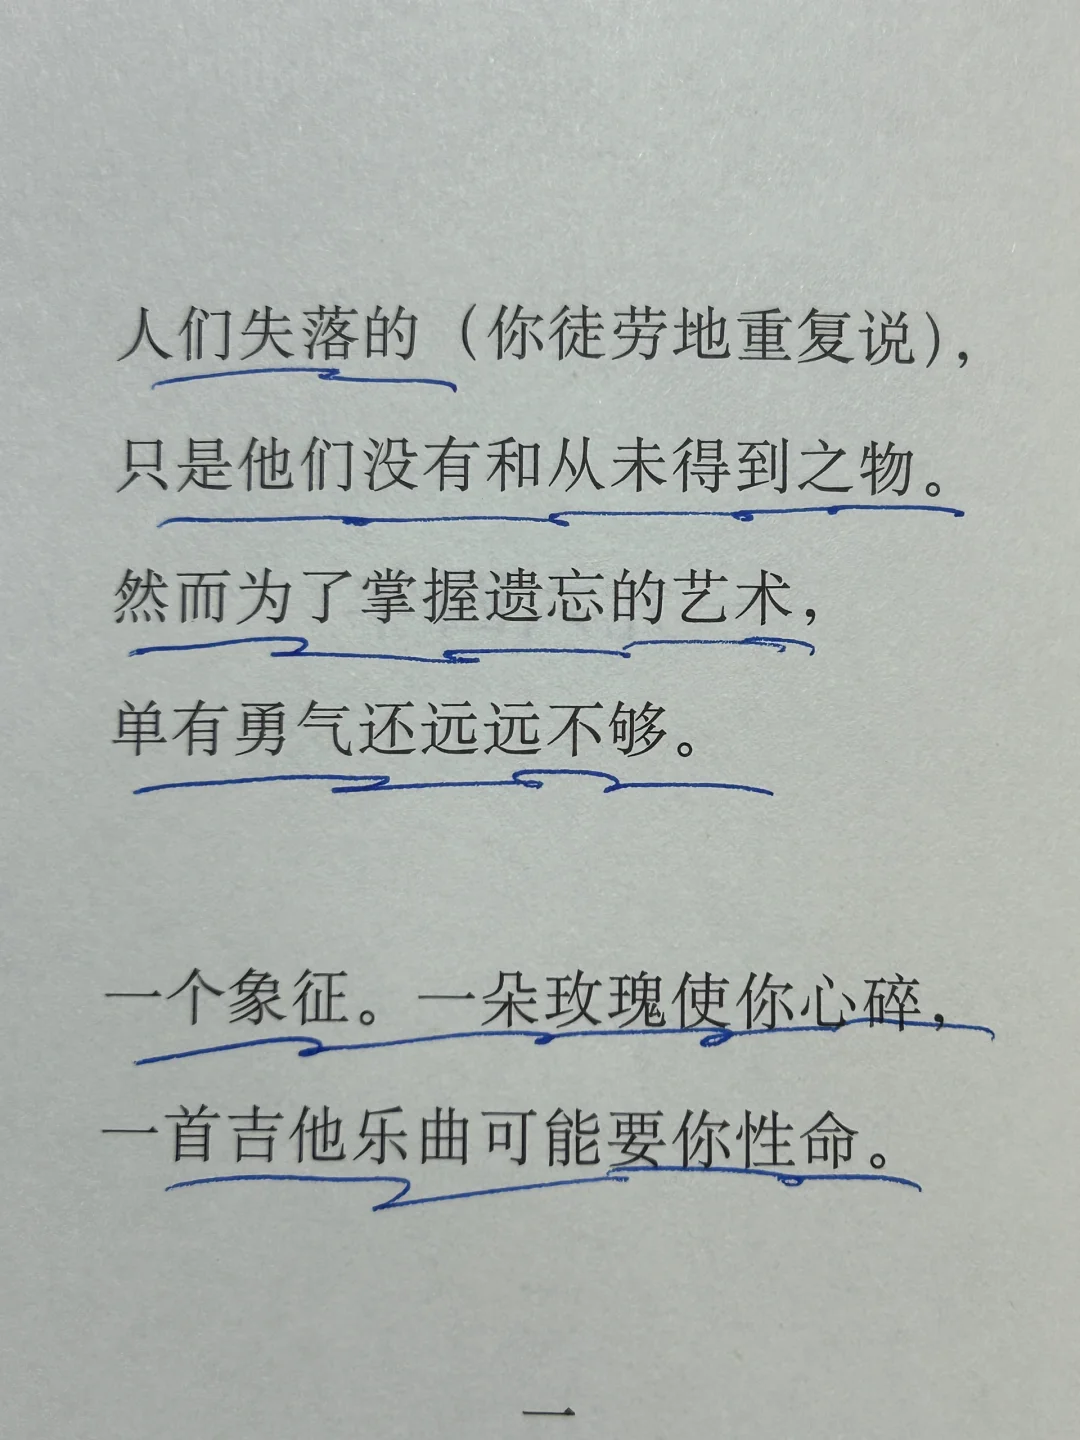 人们失落的（你徒劳地重复说），
只是他们没有和从未得到之物。
然而为了掌握遗忘的艺术，
单有勇气还远远不够。
一个象征。一朵玫瑰使你心碎，
一首吉他乐曲可能要你性命。
一